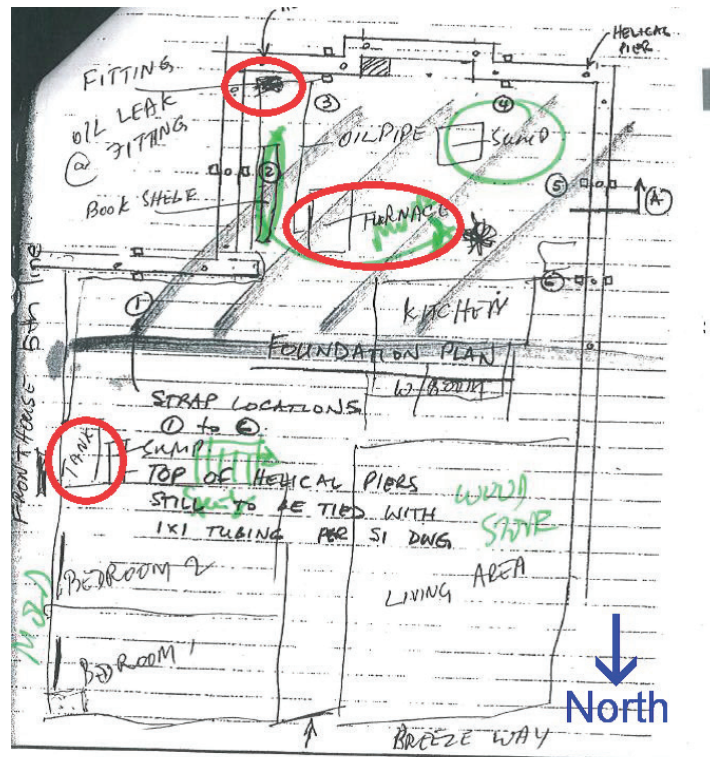 HELICAL
PIER
FITTING
OIL LEAK
@ FITTING
③
④
OIL PIPE
SUMP
②
BOOK SHELF
⑤
A
FURNACE
①
⑥
KITCHEN
FOUNDATION PLAN
STRAP LOCATIONS
① to ⑥
SUMP
TANK
TOP OF HELICAL PIERS
STILL TO BE TIED WITH
1x1 TUBING PER S1 DWG
WOOD
STOVE
FRONT HOUSE 5th line
BEDROOM 2
LIVING AREA
MOLD
BEDROOM 1
North
BREEZE WAY